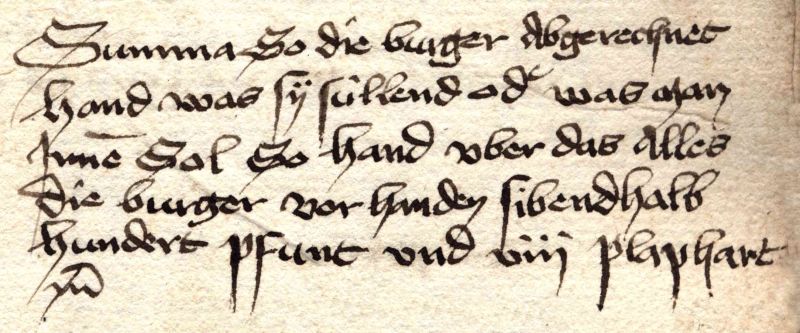 Summa So die burger Abgerechnet
hand was sÿ süllend od' was man
Innē Sol So hand vber das Alles
die burger vorhanden sibendhalb
hundert pfunt vnd viij plaphart